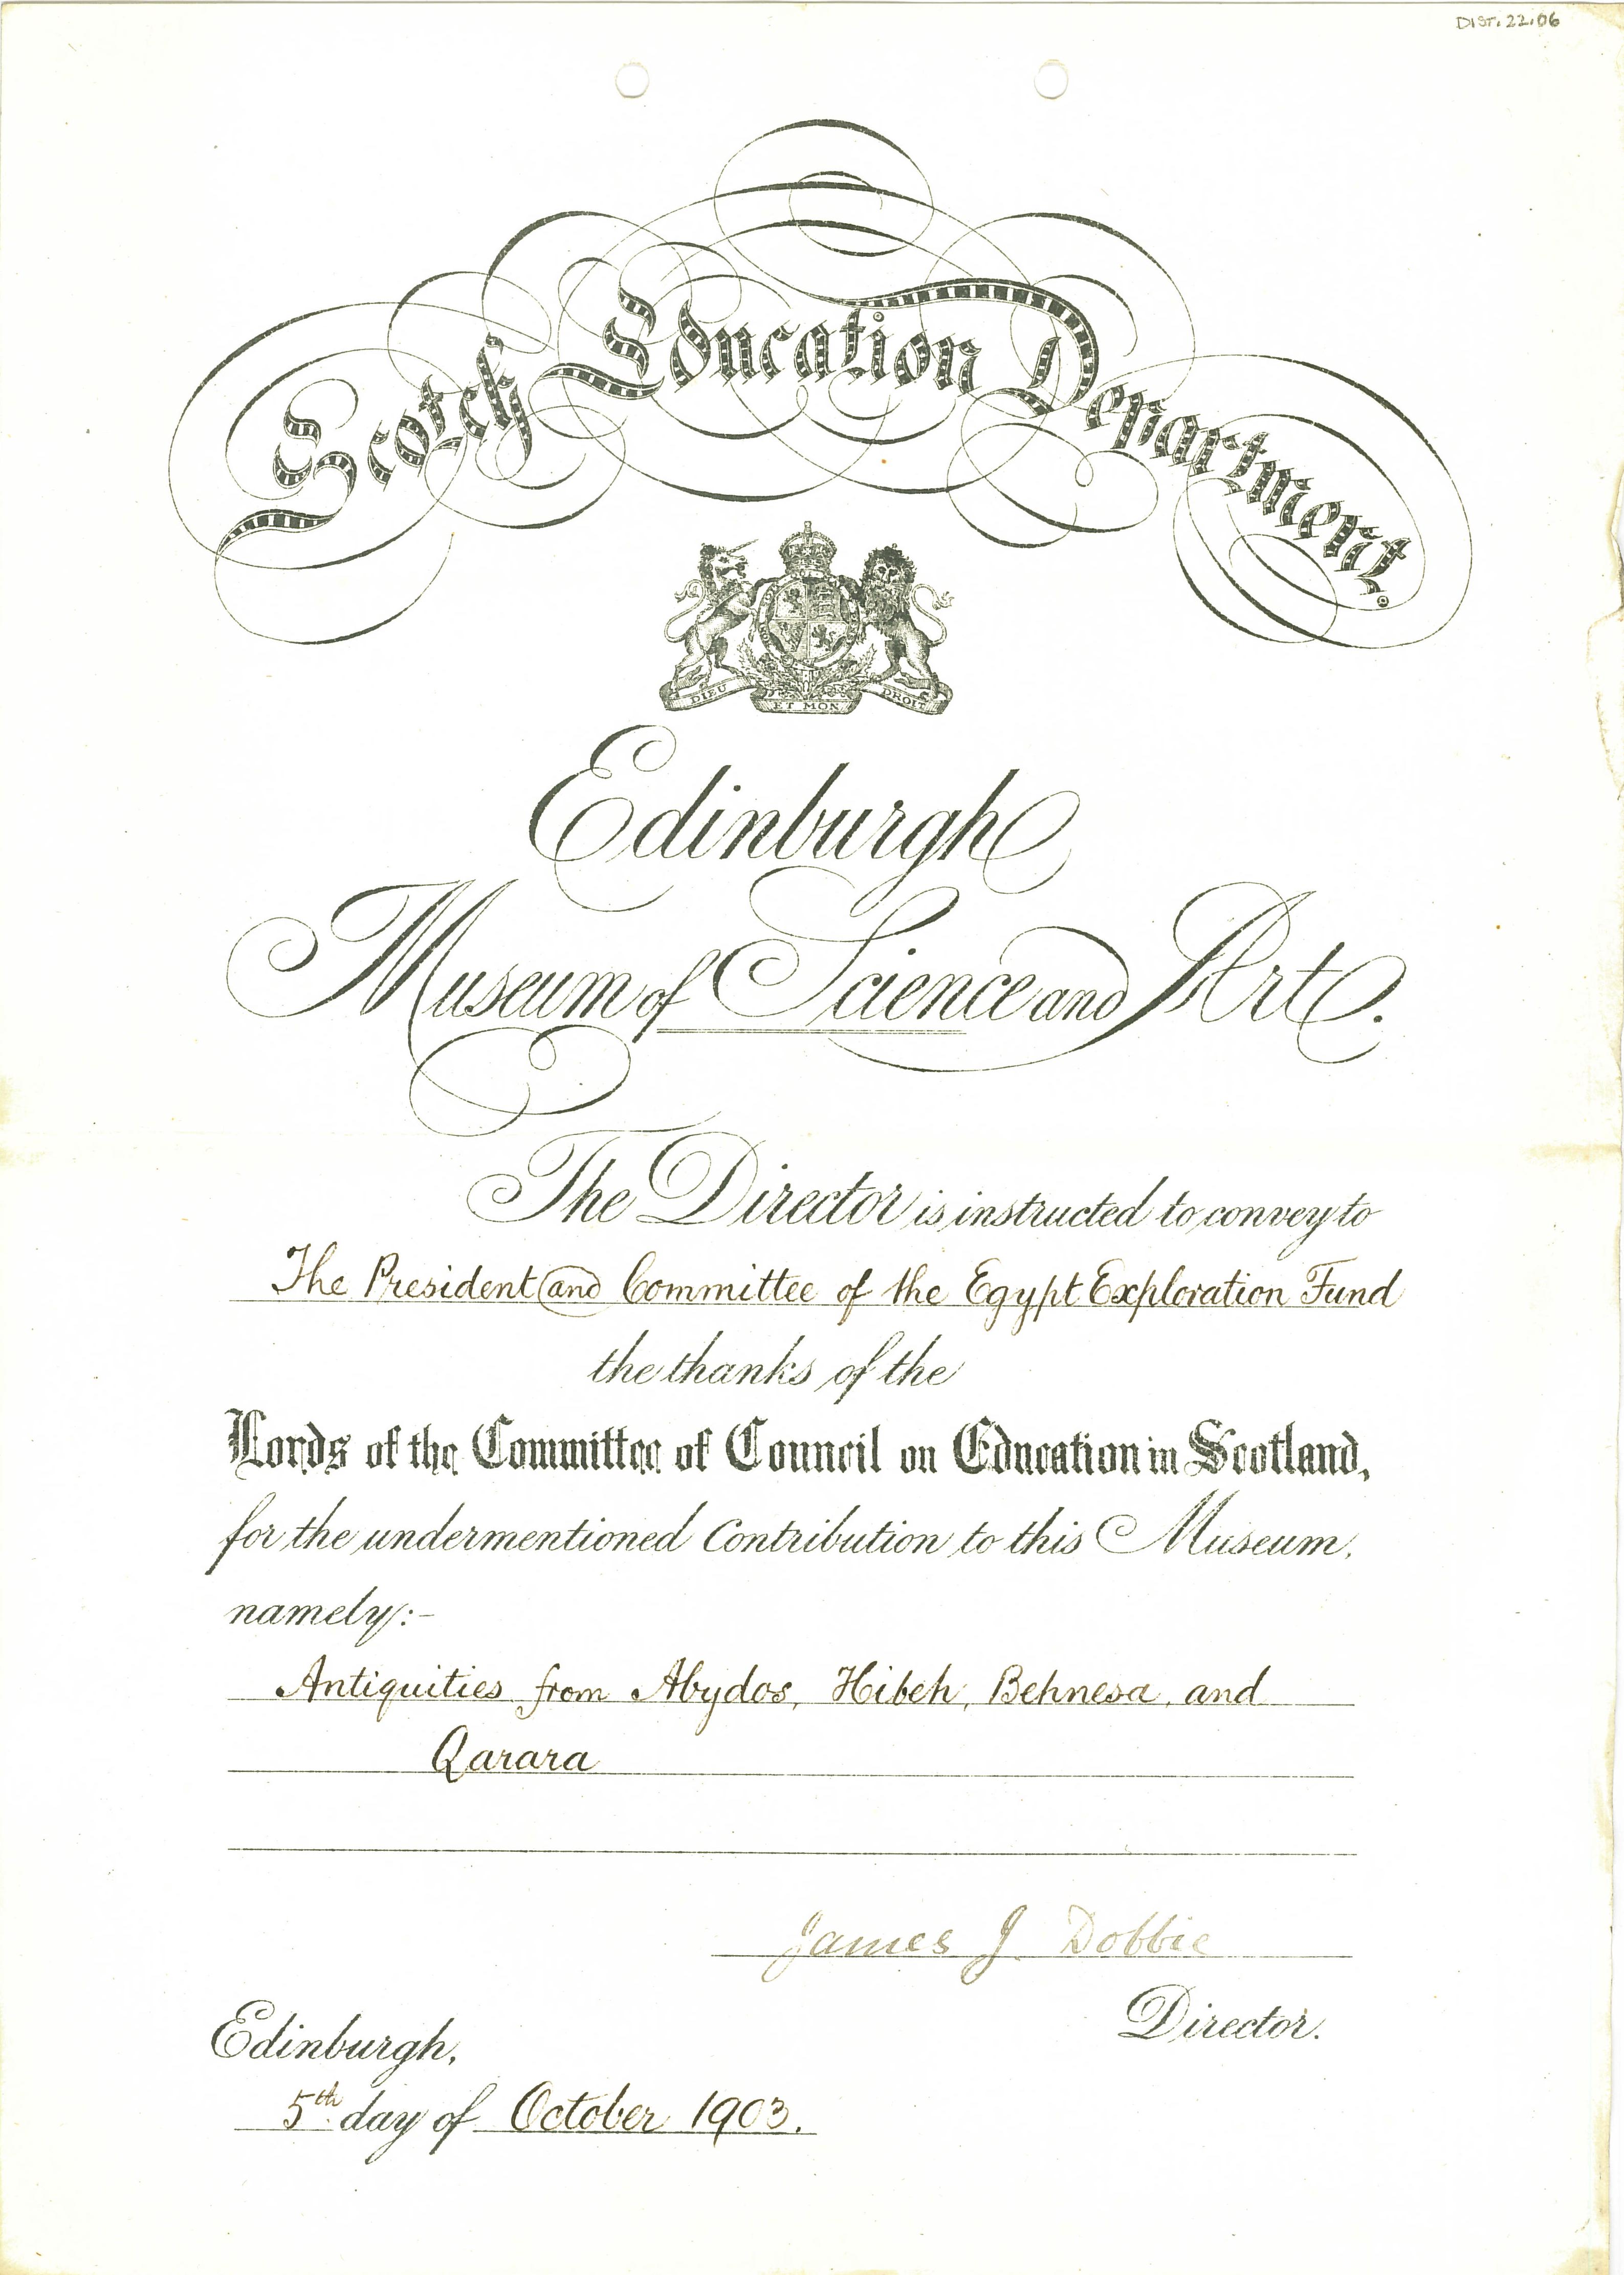 DIST.22.06
Scotch Education Department.
DIEU ET MON DROIT
Edinburgh
Museum of Science and Art.
The Director is instructed to convey to
The President and Committee of the Egypt Exploration Fund
the thanks of the
Lords of the Committee of Council on Education in Scotland,
for the undermentioned Contribution to this Museum,
namely:-
Antiquities from Abydos, Hibeh, Behnesa, and
Qarara
James J. Dobbie
Director.
Edinburgh,
5th day of October 1903.